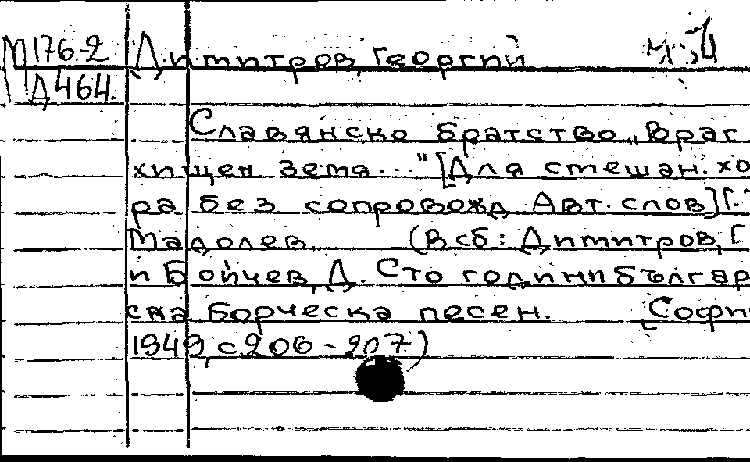 М176-2 Димитров, Георгий
Д464
Славянско братство „Враг
хищен зема..." [Для смешан. хо
ра без сопровожд. Авт. слов] Г.
Мадолев. (В сб: Димитров, Г
и Бойчев, Д. Сто години българ
ска борческа песен. [Софи
1949, с 206-207)